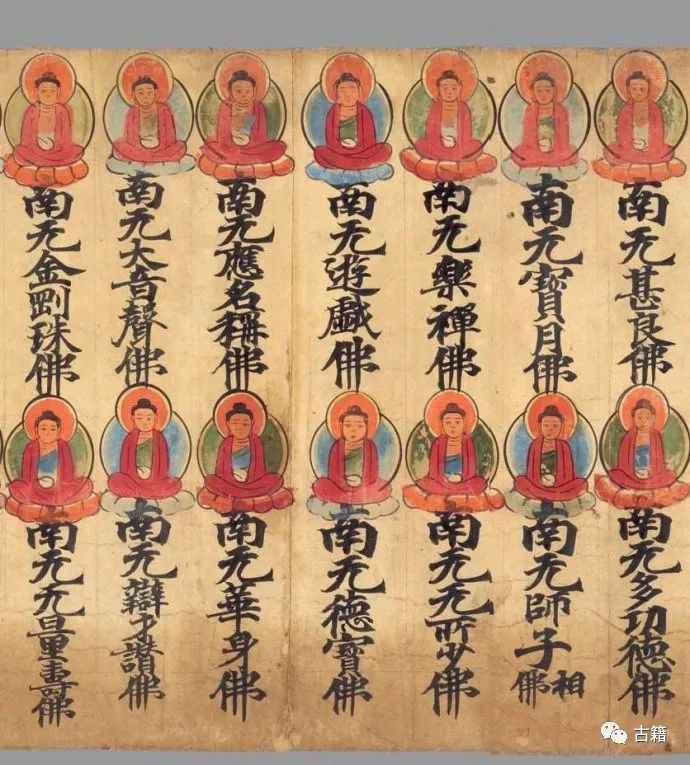 南无甚良佛
南无寶月佛
南无樂禪佛
南无遊戲佛
南无應名稱佛
南无大音聲佛
南无金剛珠佛
南无多功德佛
南无師子相佛
南无无所少佛
南无德寶佛
南无華身佛
南无辯才讚佛
南无无量壽佛
古籍